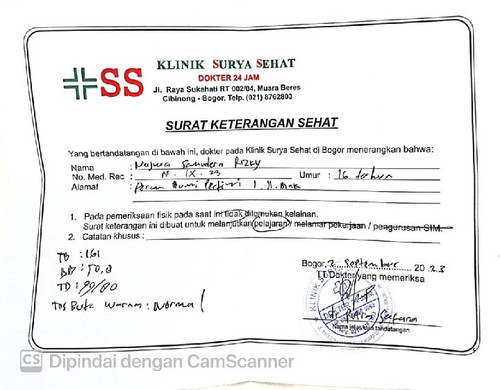 SS
KLINIK SURYA SEHAT
DOKTER 24 JAM
Jl. Raya Sukahati RT 002/04, Muara Beres
Cibinong - Bogor, Telp. (021) 8762803
SURAT KETERANGAN SEHAT
Yang bertandatangan di bawah ini, dokter pada Klinik Surya Sehat di Bogor menerangkan bahwa:
Nama : Najwa Rizky
No. Med. Rec : IX. 23 Umur : 16 tahun
Alamat :
1. Pada pemeriksaan fisik pada saat ini tidak ditemukan kelainan.
Surat keterangan ini dibuat untuk melanjutkan pelajaran / melamar pekerjaan / pengurusan SIM.
2. Catatan khusus :
TB : 161
BB : 50,0
TD : 80/80
Tes Buta Warna : Normal
Bogor, 2 September 2023
Dokter yang memeriksa
KLINIK
Nama jelas dan tandatangan
CS Dipindai dengan CamScanner